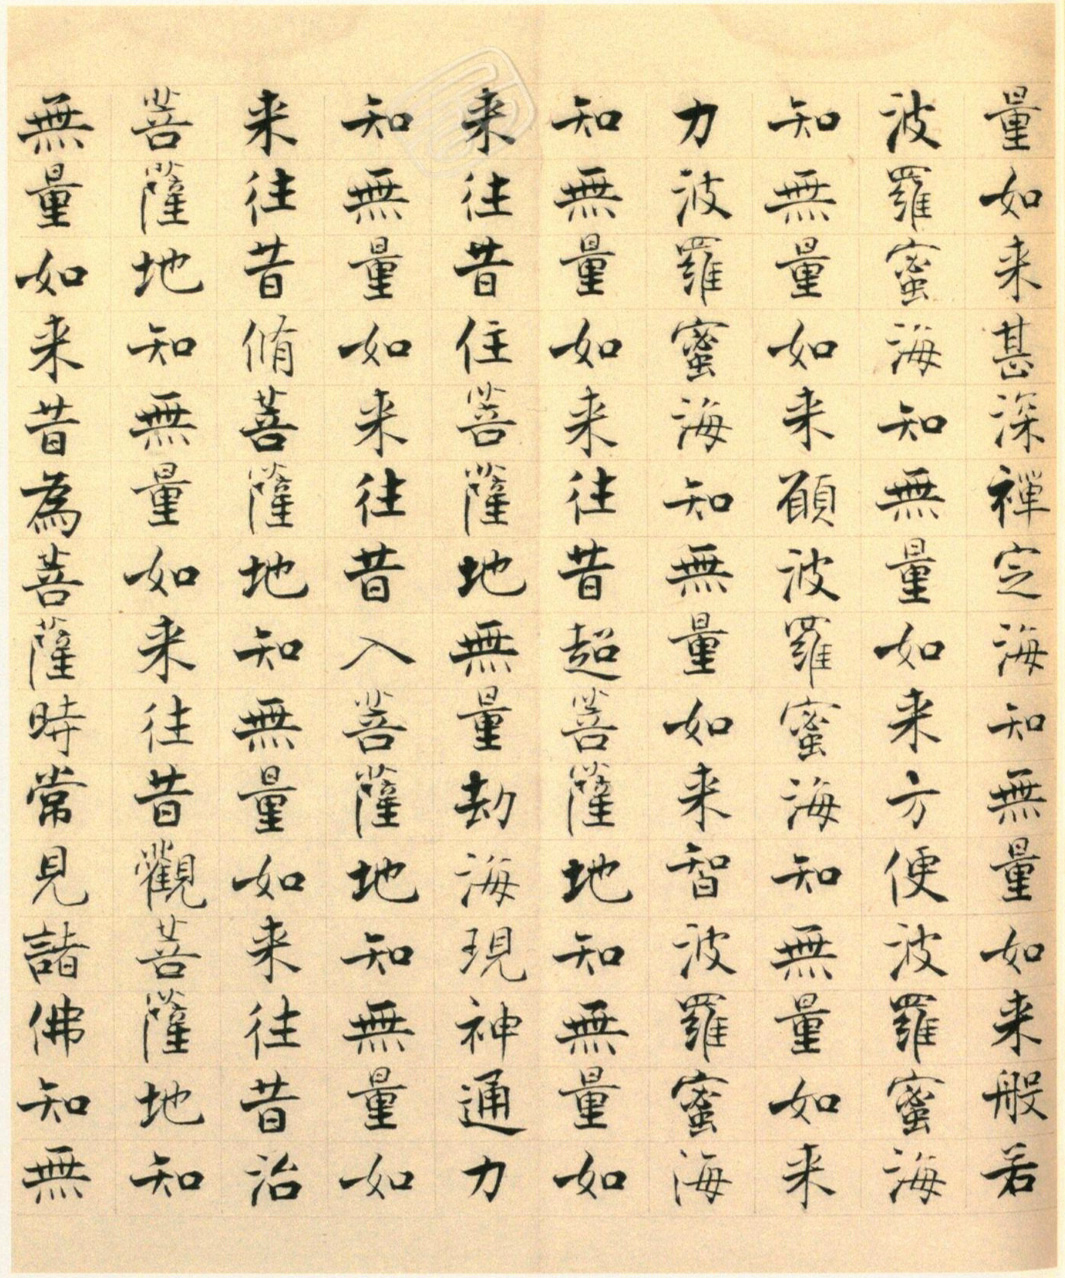 量如来甚深禪定海知無量如来般若
波羅蜜海知無量如来方便波羅蜜海
知無量如来願波羅蜜海知無量如来
力波羅蜜海知無量如来智波羅蜜海
知無量如来往昔超菩薩地知無量如
来往昔住菩薩地無量劫海現神通力
知無量如来往昔入菩薩地知無量如
来往昔脩菩薩地知無量如来往昔治
菩薩地知無量如来往昔觀菩薩地知
無量如来昔為菩薩時常見諸佛知無